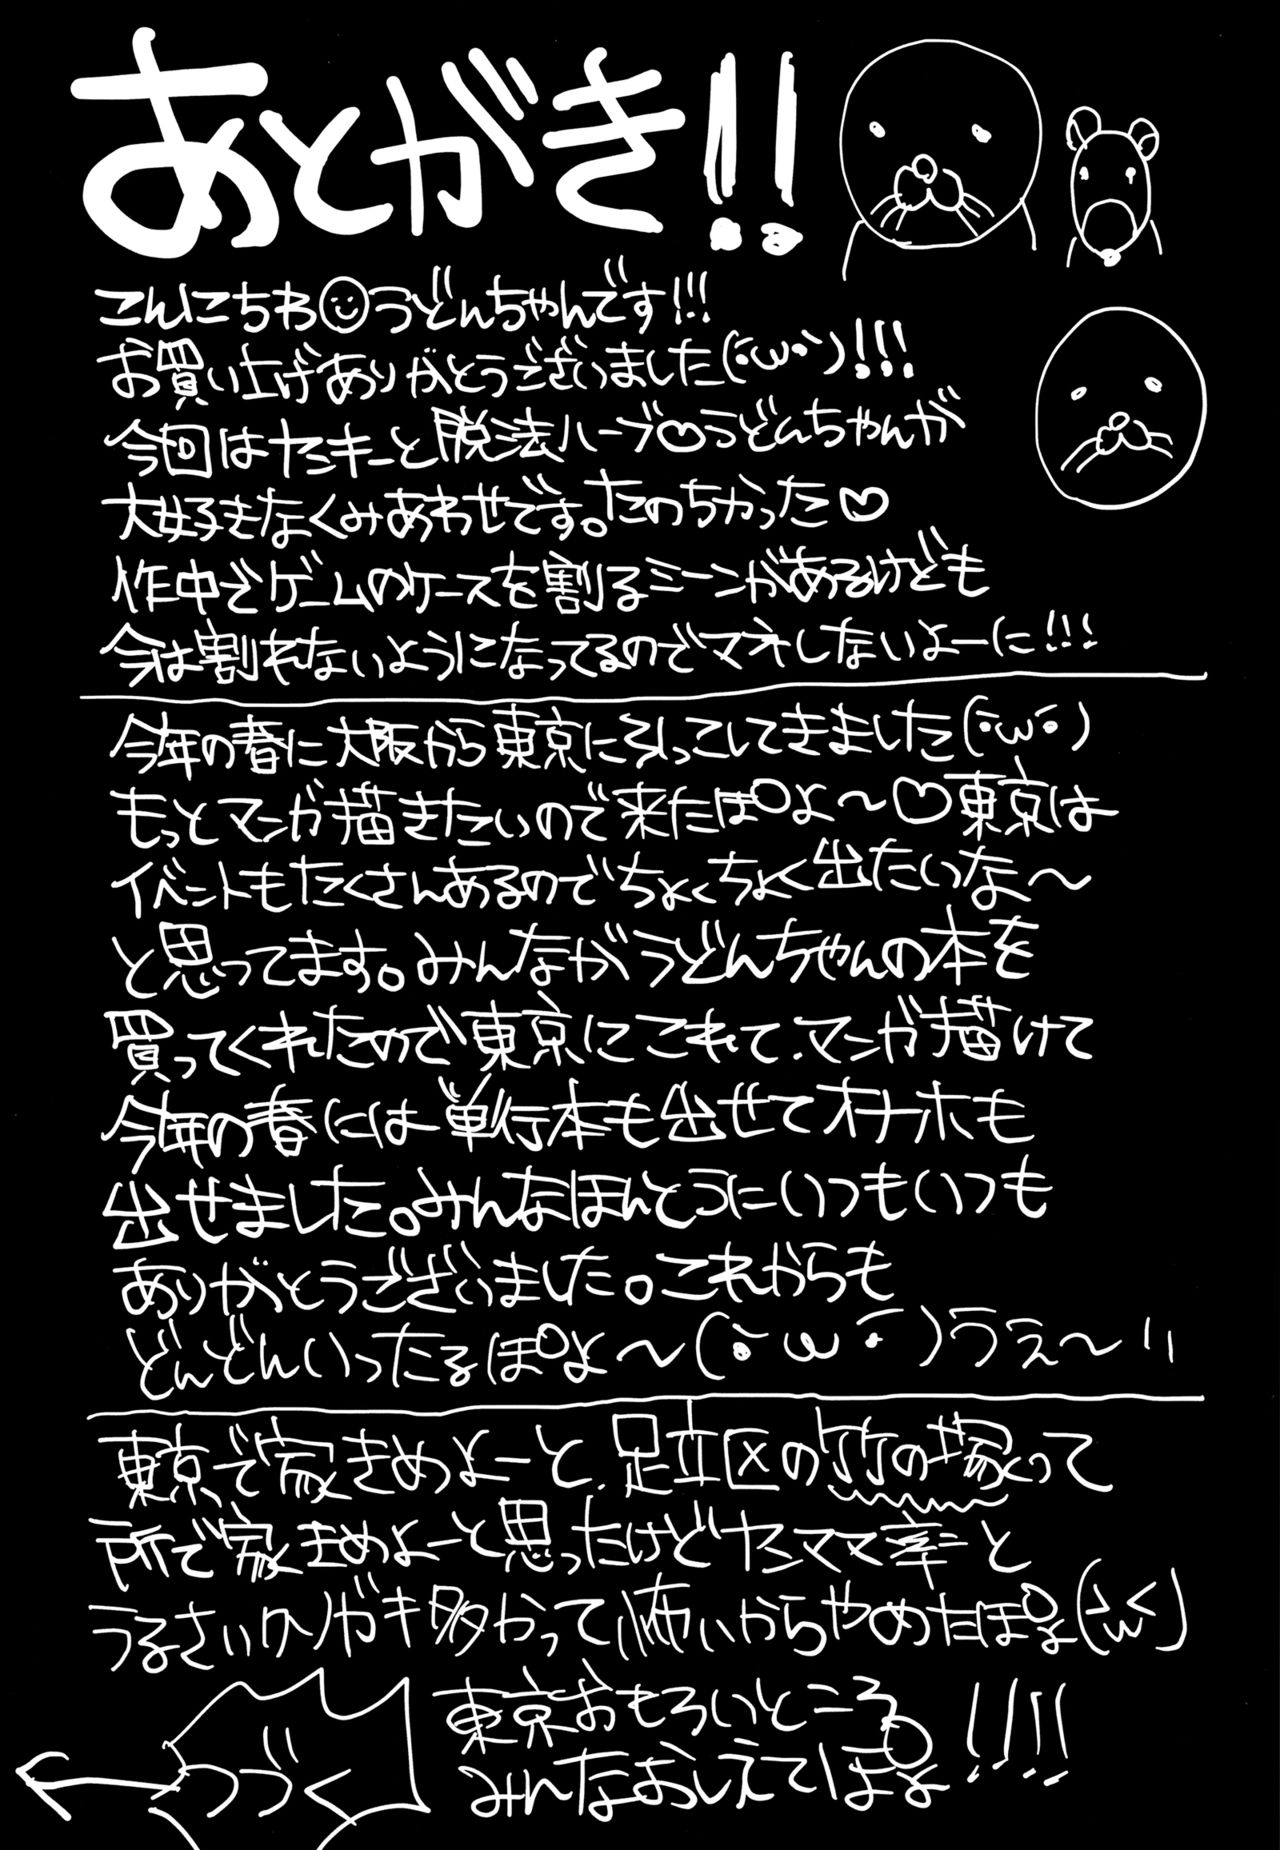 あとがき!!
こんにちわ☺うどんちゃんです!!!
お買い上げありがとうございました(´・ω・`)!!!
今回はヤンキーと脱法ハーブ♡うどんちゃんが
大好きなくみあわせです。たのちかった♡
作中でゲームのケースを割るシーンがあるけども
今は割れないようになってるのでマネしないよーに!!!
今年の春に大阪から東京に引っこしてきました(・ω・)
もっとマンガ描きたいので来たぽよ～♡東京は
イベントもたくさんあるのでちょくちょく出たいな～
と思ってます。みんながうどんちゃんの本を
買ってくれたので東京にこれて、マンガ描けて
今年の春には単行本も出せてオナホも
出せました。みんなほんとうにいつもいつも
ありがとうございました。これからも
どんどんいったるぽよ～(・ω・)うぇ～い
東京で家きめよーと、足立区の竹の塚って
所で家きめよーと思ったけどヤンママ率と
うるさいクソガキ多かって怖いからやめたぽよ(´ω`)
東京おもろいところ
みんなおしえてぽよ!!!!
つづく